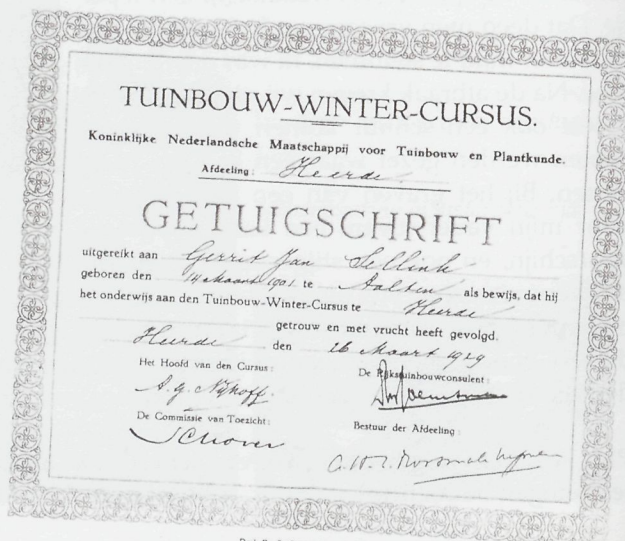 TUINBOUW-WINTER-CURSUS.
Koninklijke Nederlandsche Maatschappij voor Tuinbouw en Plantkunde.
Afdeeling: Heerde
GETUIGSCHRIFT
uitgereikt aan Gerrit Jan Sellink
geboren den 14 Maart 1901 te Aalten als bewijs, dat hij
het onderwijs aan den Tuinbouw-Winter-Cursus te Heerde
getrouw en met vrucht heeft gevolgd.
Heerde den 26 Maart 1929
Het Hoofd van den Cursus:
De Rijkstuinbouwconsulent:
A. G. Nijhoff.
De Commissie van Toezicht:
Bestuur der Afdeeling: